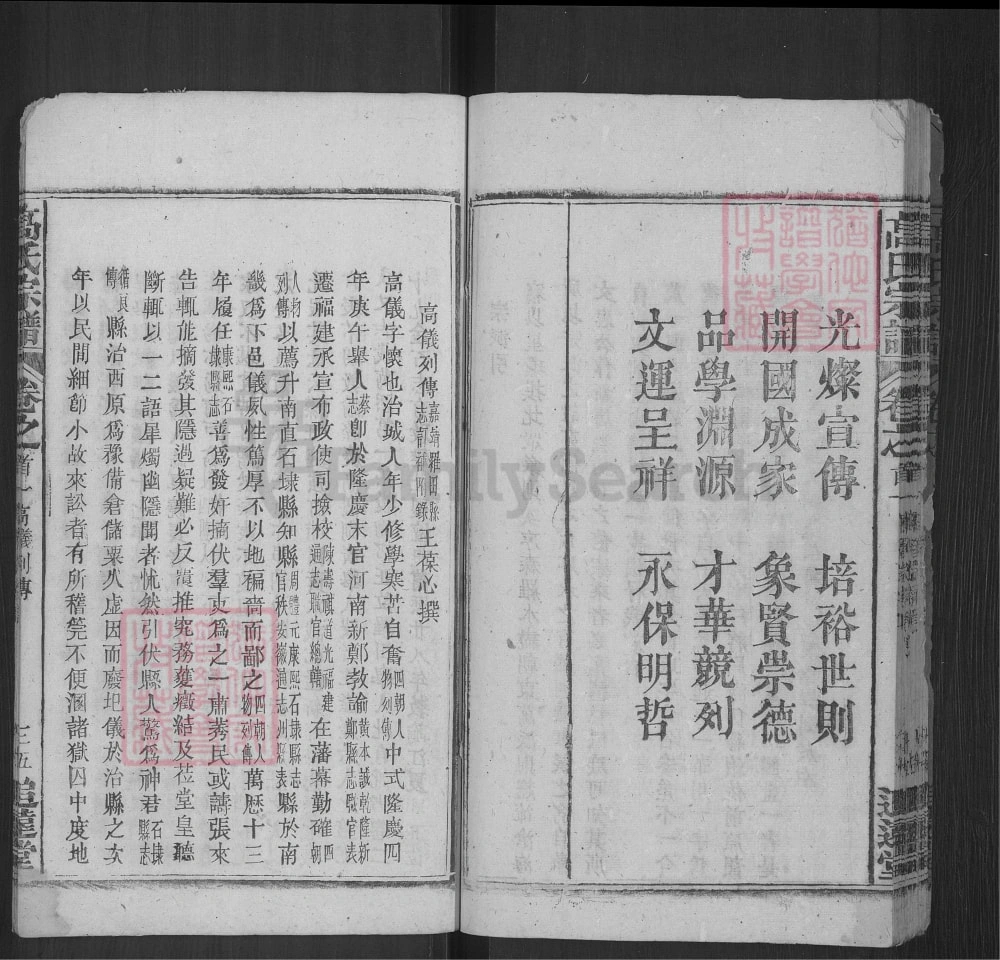 光燦宣傳　培裕世則
開國成家　象賢崇德
品學淵源　才華競列
文運呈祥　永保明哲
高儀列傳 嘉靖羅田縣志都補附錄 王葆心撰
高儀字懷也治城人年少修學寒苦自奮四朝人物列傳中式隆慶四
年庚午舉人蔡志卽於隆慶末官河南新鄭教諭黃本誠乾隆新鄭縣志職官表
遷福建承宣布政使司撿校陳壽祺道光福建通志職官總轄在藩幕勤確四朝
人物列傳以薦升南直石埭縣知縣周體元康熙石隸縣志官秩安徽通志州縣表縣於南
畿爲下邑儀夙性篤厚不以地褊嗇而鄙之四朝人物列傳萬歷十三
年履任康熙石埭縣志善爲發奸摘伏羣吏爲之一肅莠民或譸張來
告輒能摘發其隱過疑難必反覆推究務獲癥結及莅堂皇聽
斷輒以一二語犀燭幽隱聞者怳然引伏縣人驚爲神君石埭縣志
循良傳縣治西原爲豫備倉儲粟火虛因而廢圯儀於治縣之次
年以民間細節小故來訟者有所稽筦不便溷諸獄囚中度地
高氏宗譜
卷之首一
高儀列傳
七五
追遠堂